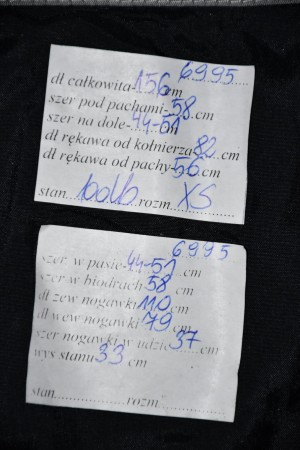 6995
dł całkowita-156cm
szer pod pachami-58cm
szer na dole-44-51cm
dł rękawa od kołnierza82cm
dł rękawa od pachy-56cm
stan 100% rozm. XS
6995
szer. w pasie-44-51.cm
szer w biodrach 58 cm
dł zew nogawki110cm
dł wew nogawki 79cm
szer nogawki w udzie 37cm
wys stanu33 cm
stan..................rozm...............